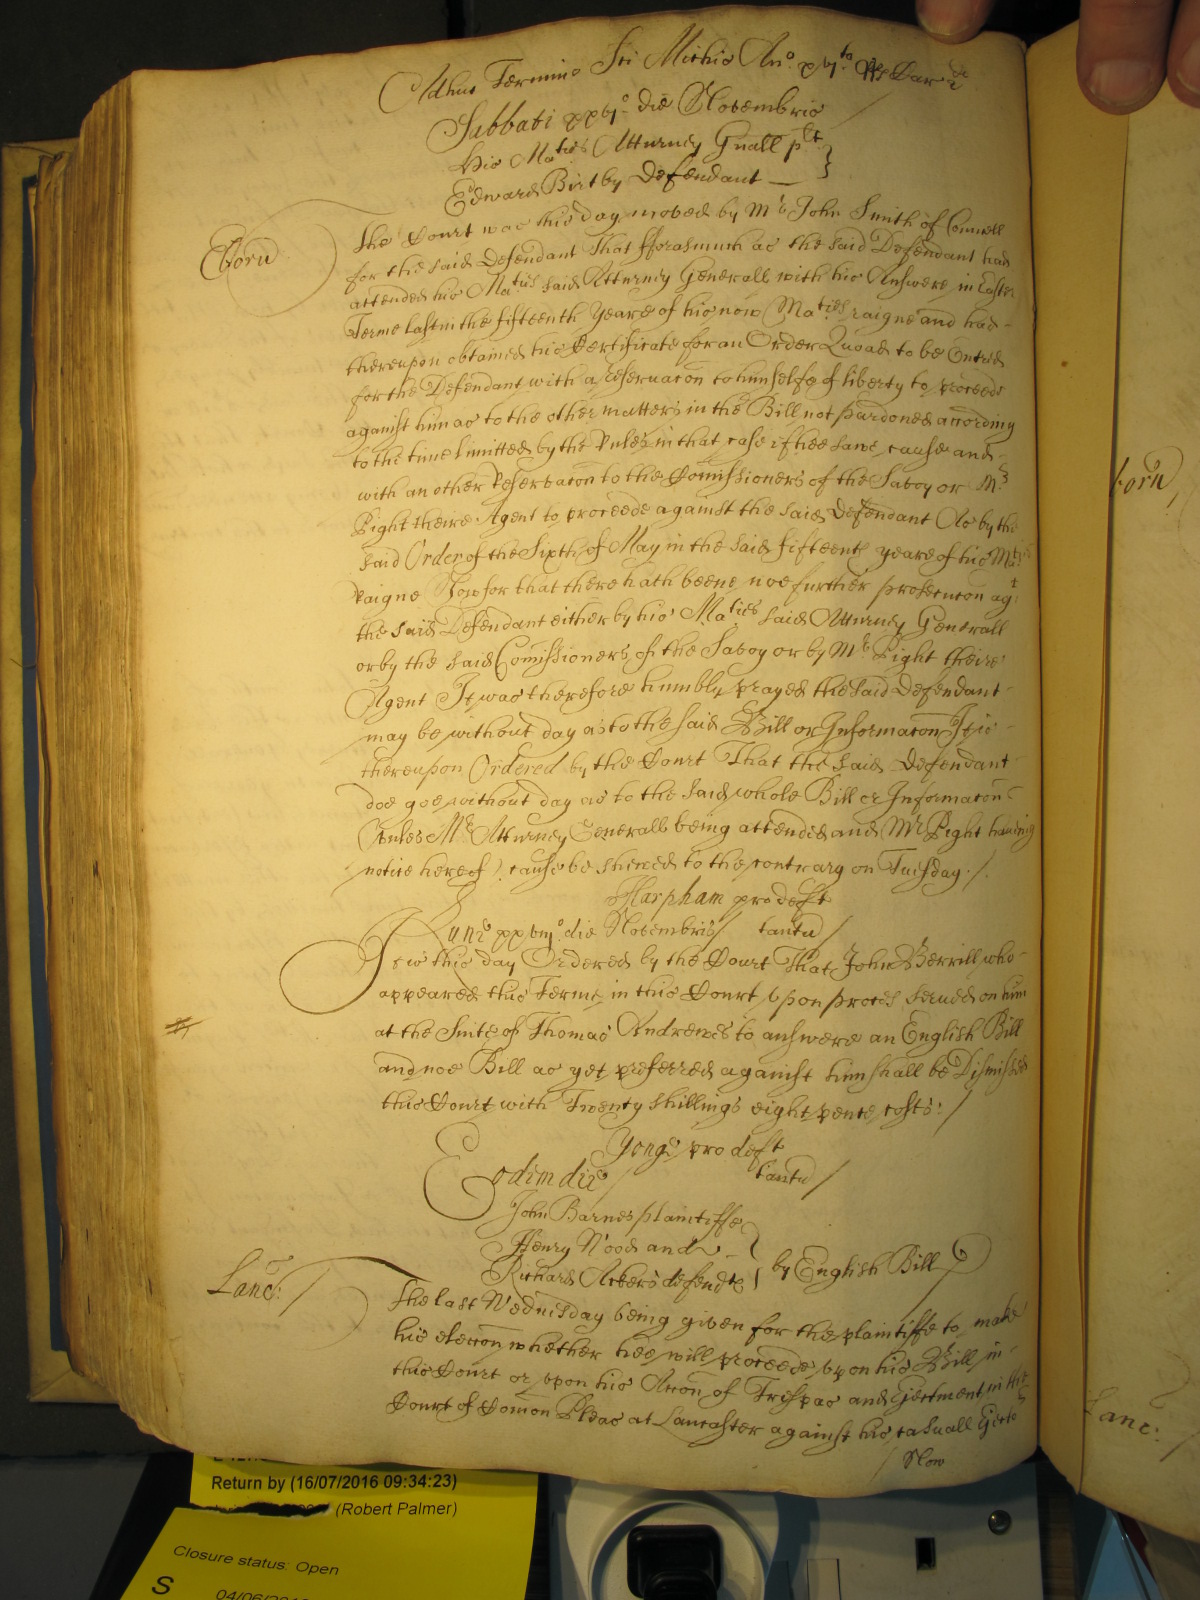 Adhuc Termino Sti Michis Ano xvjto Rs Car 2di
Sabbati xxvjo die Novembris
His Maties Atturney Gnall plt
Edward Birtby Defendant
Eborū
The Court was this day moved by Mr John Smith of Councell
for the said Defendant That fforasmuch as the said Defendant had
attended his Maties said Atturney Generall with his Answere in Easter
Terme last in the fifteenth Yeare of his now Maties raigne and had
thereupon obtained his Certificate for an Order Quoad to be Entred
for the Defendant with a reservacōn to himselfe of liberty to proceede
against him as to the other matters in the Bill not pardoned according
to the time limitted by the Rules in that case if hee sawe cause and
with an other Reservacōn to the Comissioners of the Savoy or Mr
Right theire Agent to proceede against the said Defendant As by the
said Order of the Sixth of May in the said fifteenth yeare of his Maties
Raigne Now for that there hath beene noe further prosecucōn agt
the said Defendant either by his Maties said Atturney Generall
or by the said Comissioners of the Savoy or by Mr Right theire
Agent It was therefore humbly prayed the said Defendant
may be without day as to the said Bill or Informacōn It is
thereupon Ordered by the Court That the said Defendant
doe goe without day as to the said whole Bill or Informacōn
(Unles Mr Atturney Generall being attended and Mr Right haveing
notice hereof) cause be shewed to the contrary on Tuesday ./.
Harpham pro deft
Lune xxviijo die Novembris / tantū /
It is this day Ordered by the Court That John Berrill who
appeared this Terme in this Court upon proces served on him
at the Suite of Thomas Andrewes to answere an English Bill
and noe Bill as yet preferred against him shall be Dismissed
this Court with Twenty shillings eight pence costs: /
Yonge pro deft
Eodem die / tantū /
John Barnes plaintiffe
Henry Wood and
Richard Akers defendts } by English Bill
Lanc: /
The last Wednesday being given for the plaintiffe to make
his eleccōn whether hee will proceede upon his Bill in
this Court or upon his Accōn of Trespas and Ejectment in the
Court of Comon Pleas at Lancaster against his casuall Ejector
/ Now
borū
Lanc:
Return by (16/07/2016 09:34:23)
(Robert Palmer)
Closure status: Open
S